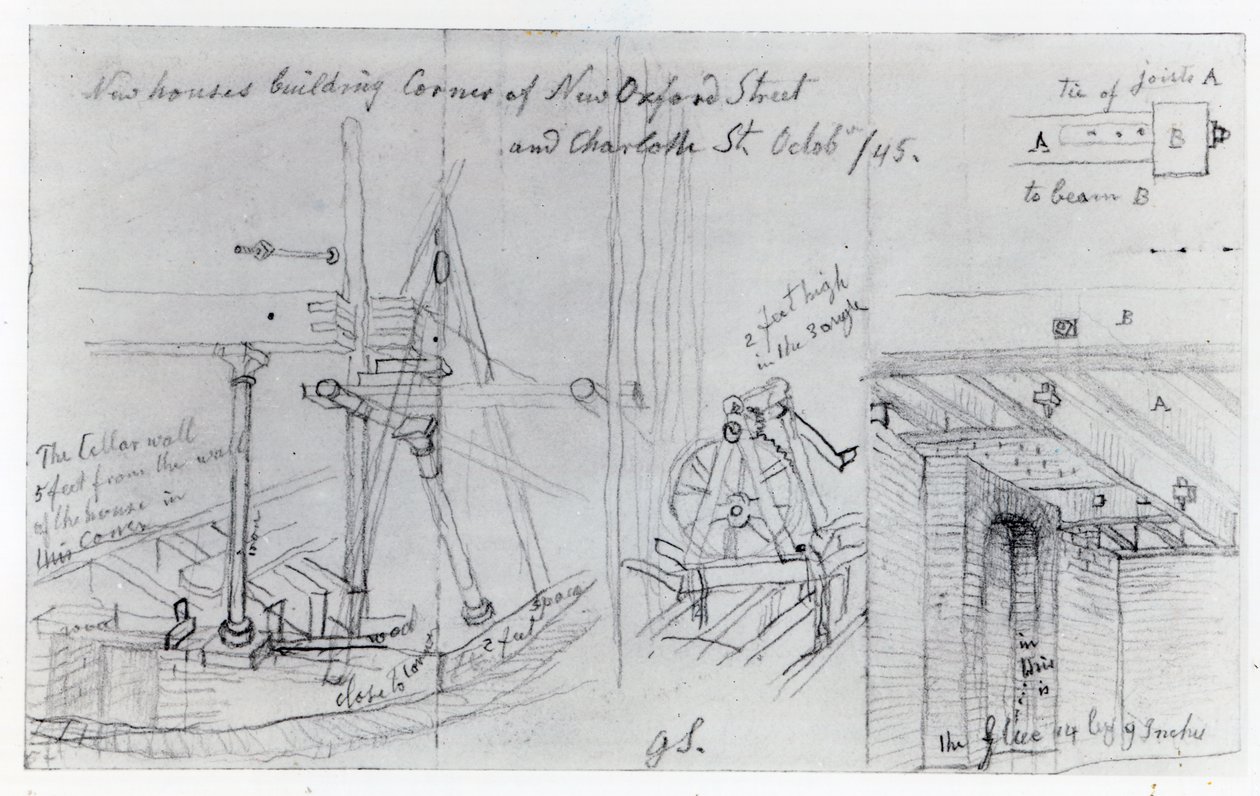 New houses building Corner of New Oxford Street
and Charlotte St. Octobr /45.
tie of joists A
A
B
to beam B
2 feet high
in the 3 angle
B
A
The Cellar wall
5 feet from the wall
of the house in
this corner
iron
wood
wood
close to corner
2 feet space
in
this
is
the flue 14 by 9 Inches
G S.